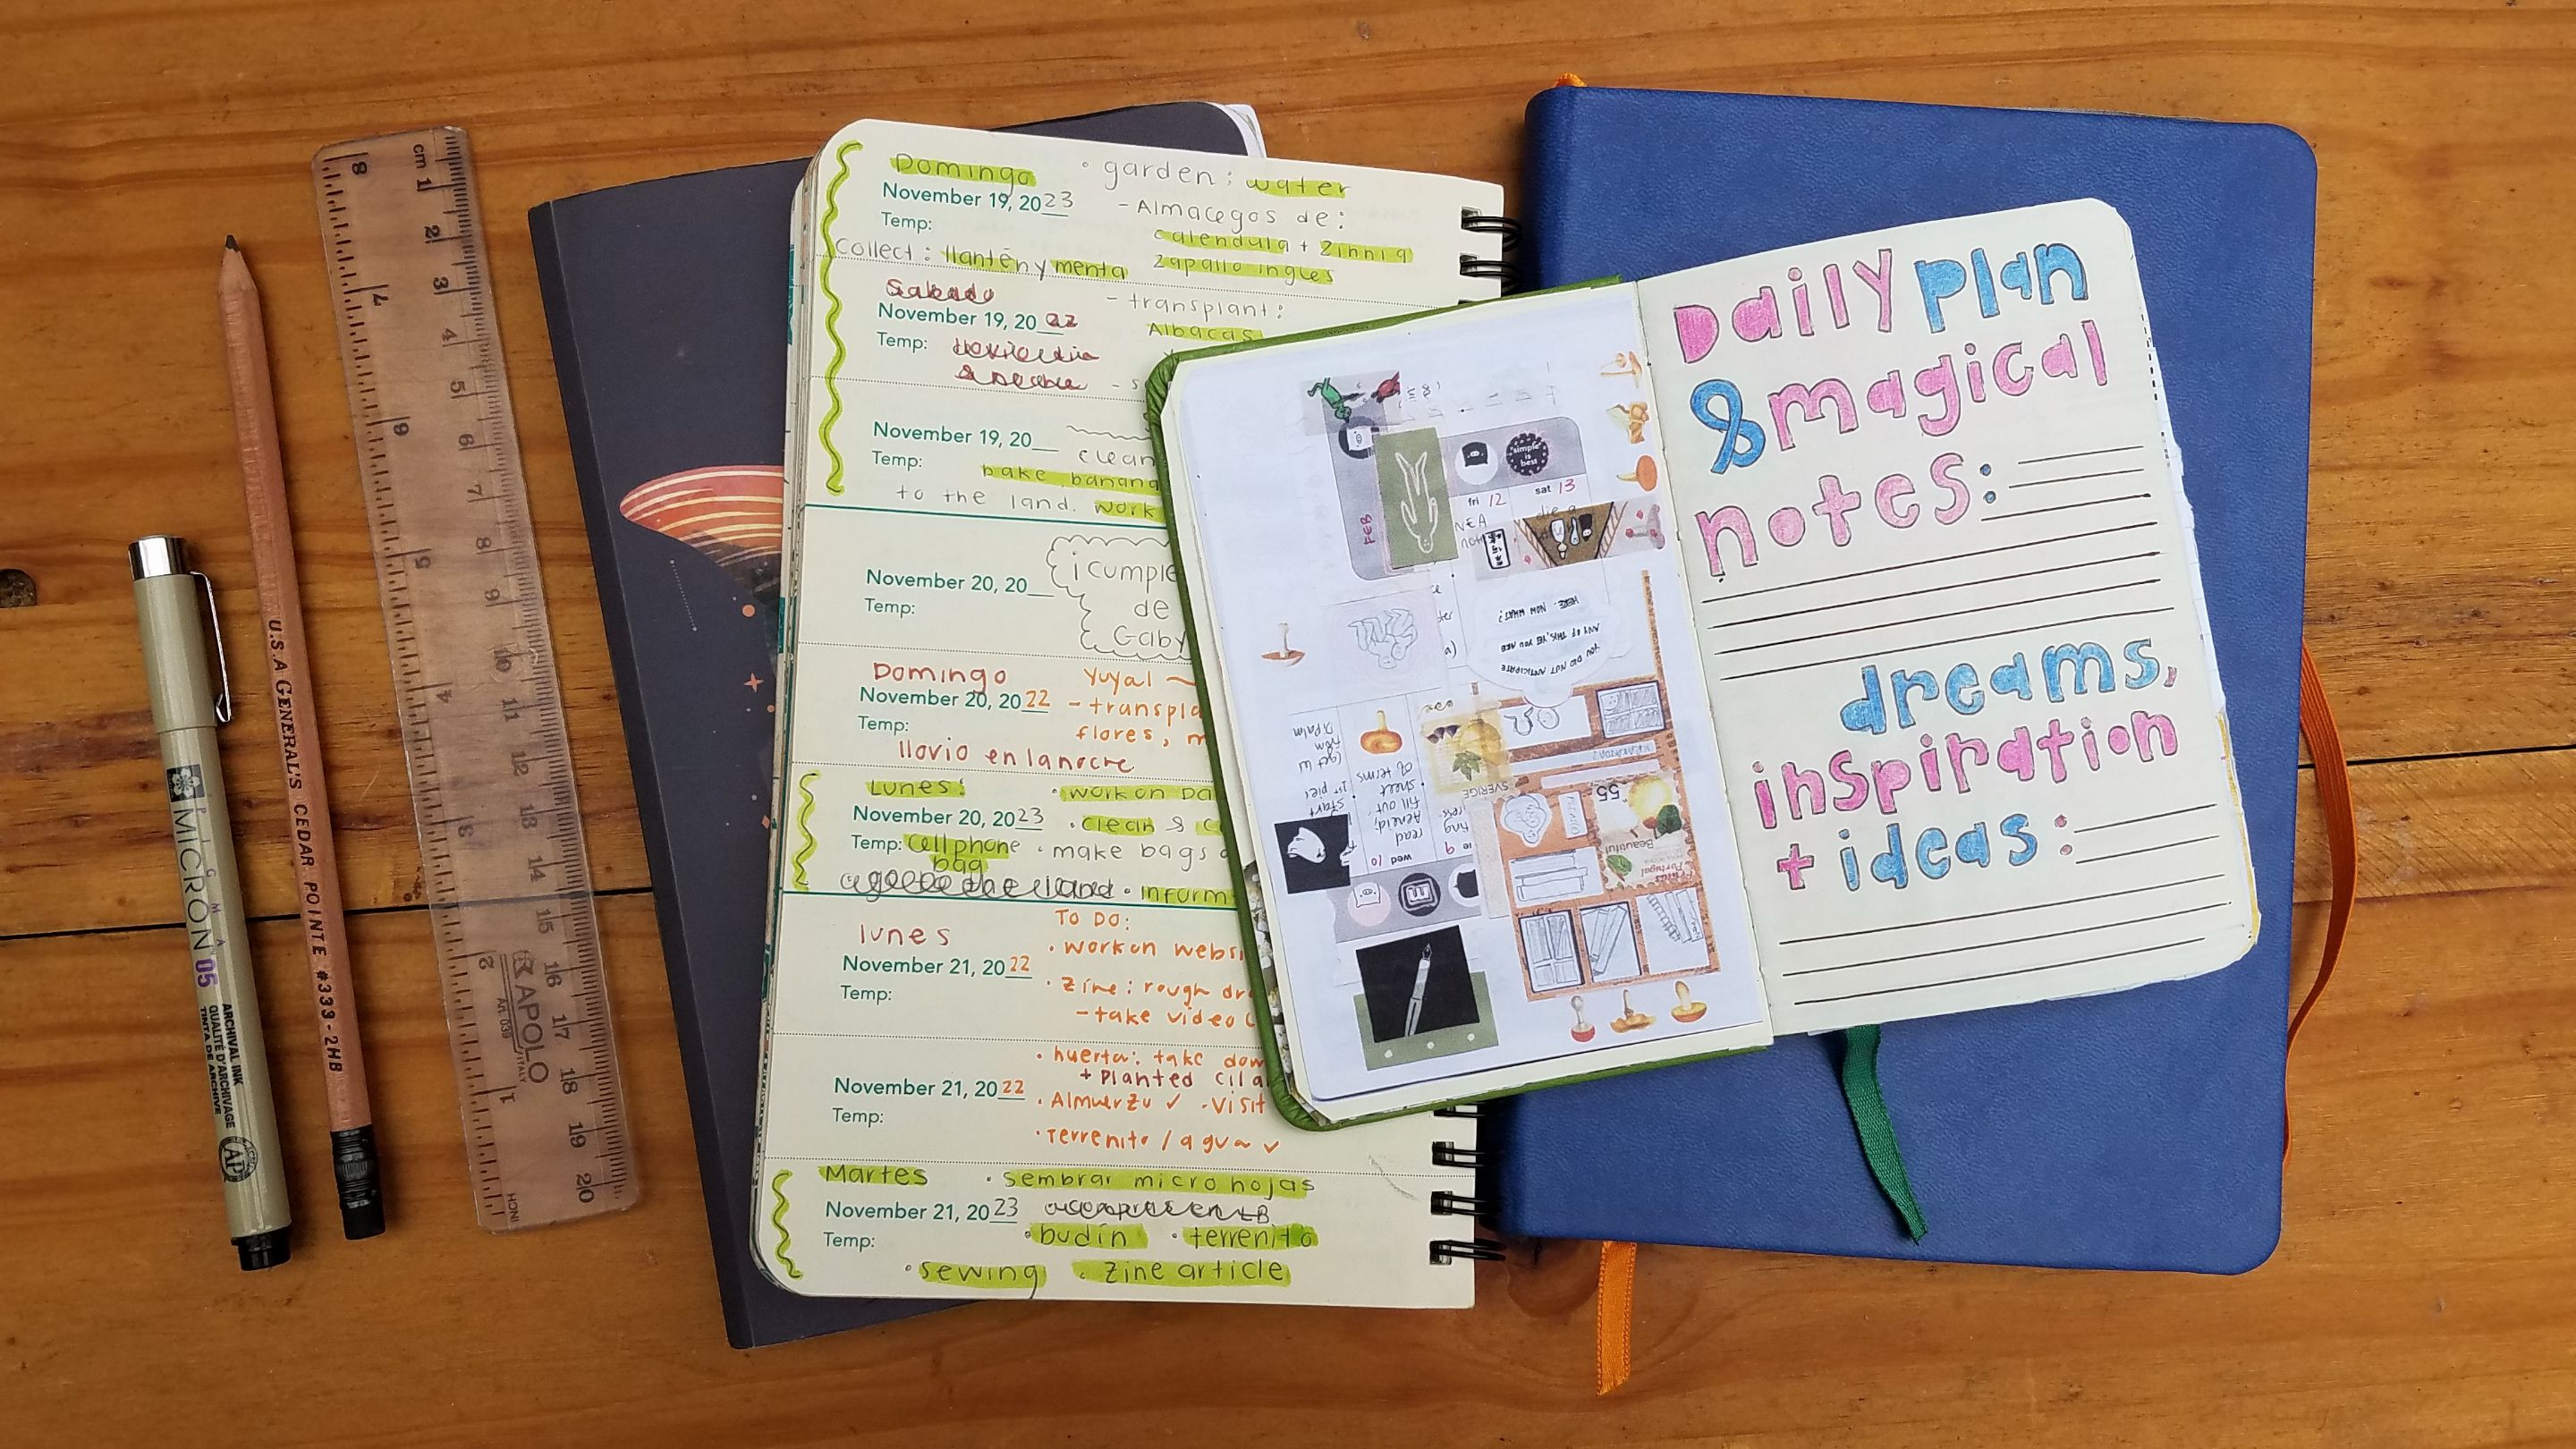 Domingo
November 19, 2023
Temp:
collect: llantén y menta
• garden: water
- Almacegos de:
calendula + zinnia
zapallo ingles
Sabado
November 19, 2022
Temp:
- transplant:
Albacas
November 19, 20__
Temp:
clean
bake banana
to the land. work
November 20, 20__
Temp:
¡cumple
de
Gaby
Domingo
November 20, 2022
Temp:
llovio en la noche
yuyal
- transpla
flores, m
Lunes:
November 20, 2023
Temp: cellphone
bag
• work on
• clean &
• make bags
• inform
lunes
November 21, 2022
Temp:
TO DO:
• work on websi
• zine: rough dr
- take video
November 21, 2022
Temp:
• huerta: take dow
+ planted cila
• Almuerzo ✓ • visit
• Terrenito / agua ✓
Martes
November 21, 2023
Temp:
• sembrar micro hojas
• budin • terrenito
• sewing • zine article
Daily plan
& magical
notes:
dreams,
inspiration
+ ideas:
simple
is
best
FEB
fri 12
sat 13
YOU DID NOT ANTICIPATE
ANY OF THIS, YET YOU ARE
HERE. NOW WHAT?
wed 10
read
Aeneid;
fill out
sheet
of terms
start
1st pie
from
SVERIGE
55
Beautiful
Portugal
cm 1 2 3 4 5 6 7 8 9 10 11 12 13 14 15 16 17 18 19 20
8 7 6 5 4 3 2 1
INCH
APOLO
Art. 039
ITALY
U.S.A GENERAL'S CEDAR POINTE #333-2HB
PIGMA
MICRON 05
ARCHIVAL INK
QUALITÉ D'ARCHIVAGE
TINTA DE ARCHIVE
AP